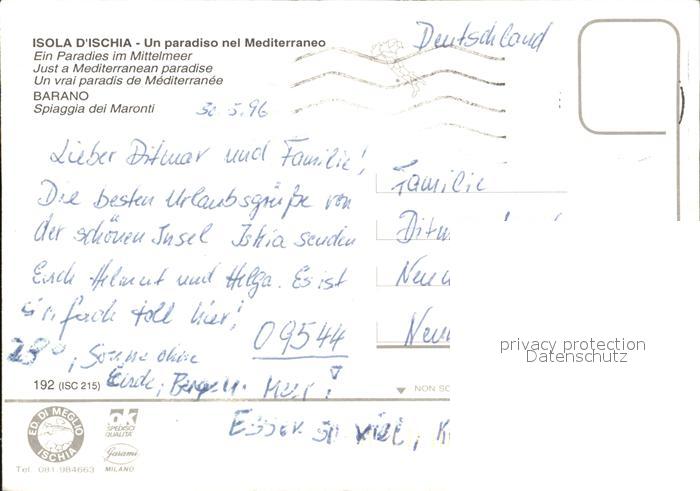 ISOLA D'ISCHIA - Un paradiso nel Mediterraneo
Ein Paradies im Mittelmeer
Just a Mediterranean paradise
Un vrai paradis de Méditerranée
BARANO
Spiaggia dei Maronti
30.5.96
Deutschland
Lieber Ditmar und Familie!
Die besten Urlaubsgrüße von
der schönen Insel Iskia senden
Euch Helmut und Helga. Es ist
einfach toll hier!
28°, Sonne ohne
Ende, Berge u. Meer!
Essen so viel,
Familie
Ditm
Neun
Neun
09544
privacy protection
Datenschutz
192 (ISC 215)
NON SC
ED. DI MEGLIO
ISCHIA
Tel. 081.984663
OK
SPEDISCI
QUALITA'
Garami
MILANO